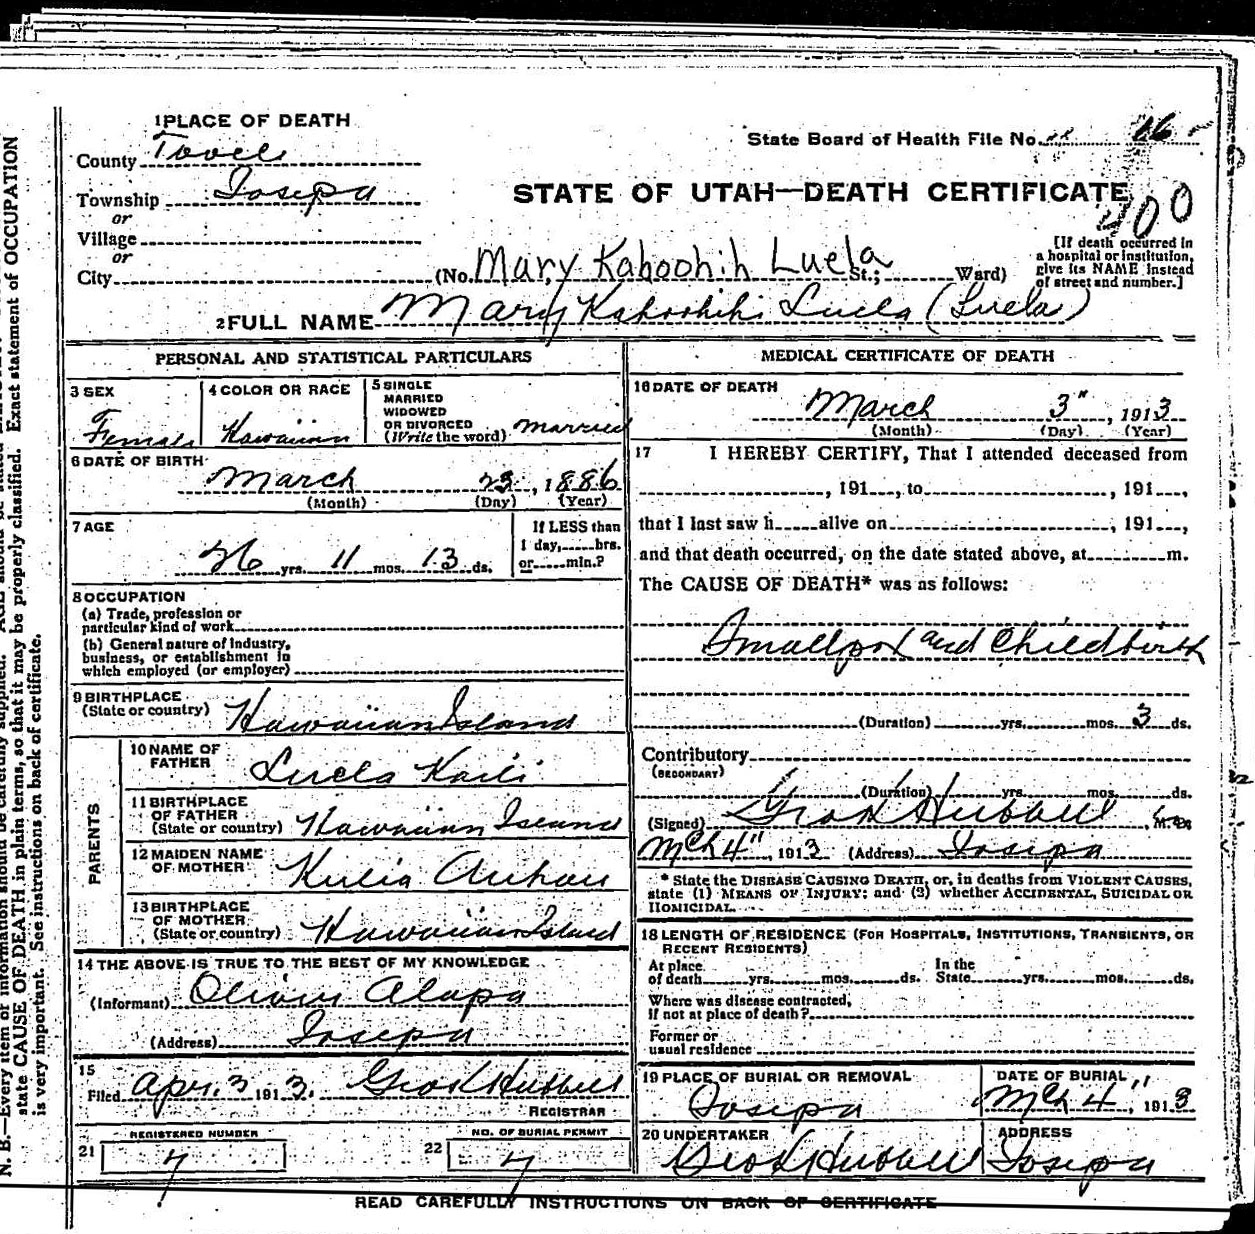 1 PLACE OF DEATH
County Tooele
Township Iosepa
or
Village
or
City
State Board of Health File No. 16
STATE OF UTAH—DEATH CERTIFICATE
400
[If death occurred in
a hospital or institution,
give its NAME instead
of street and number.]
(No. Mary Kahoohih Luela St.; Ward)
2 FULL NAME Mary Kahoohihi Luela (Luela)
PERSONAL AND STATISTICAL PARTICULARS
3 SEX
Female
4 COLOR OR RACE
Hawaiian
5 SINGLE
MARRIED
WIDOWED
OR DIVORCED
(Write the word) married
6 DATE OF BIRTH
March 23, 1886
(Month) (Day) (Year)
7 AGE
26 yrs. 11 mos. 13 ds.
If LESS than
1 day, hrs.
or min.?
8 OCCUPATION
(a) Trade, profession or
particular kind of work
(b) General nature of industry,
business, or establishment in
which employed (or employer)
9 BIRTHPLACE
(State or country) Hawaiian Island
PARENTS
10 NAME OF
FATHER Luela Kaili
11 BIRTHPLACE
OF FATHER
(State or country) Hawaiian Island
12 MAIDEN NAME
OF MOTHER Kulia
13 BIRTHPLACE
OF MOTHER
(State or country) Hawaiian Island
14 THE ABOVE IS TRUE TO THE BEST OF MY KNOWLEDGE
(Informant) Alapa
(Address) Iosepa
15
Filed Apr. 3 1913. Geo Hubbell
REGISTRAR
REGISTERED NUMBER
21 7
NO. OF BURIAL PERMIT
22 7
MEDICAL CERTIFICATE OF DEATH
16 DATE OF DEATH
March 3", 1913
(Month) (Day) (Year)
17 I HEREBY CERTIFY, That I attended deceased from
, 191 , to , 191 ,
that I last saw h alive on , 191 ,
and that death occurred, on the date stated above, at m.
The CAUSE OF DEATH* was as follows:
Smallpox and Childbirth
(Duration) yrs. mos. 3 ds.
Contributory
(SECONDARY)
(Duration) yrs. mos. ds.
(Signed) Geo Hubbell, M.D.
Mch 4", 1913 (Address) Iosepa
* State the DISEASE CAUSING DEATH, or, in deaths from VIOLENT CAUSES,
state (1) MEANS OF INJURY; and (2) whether ACCIDENTAL, SUICIDAL OR
HOMICIDAL.
18 LENGTH OF RESIDENCE (FOR HOSPITALS, INSTITUTIONS, TRANSIENTS, OR
RECENT RESIDENTS)
At place
of death yrs. mos. ds.
In the
State yrs. mos. ds.
Where was disease contracted,
If not at place of death?
Former or
usual residence
19 PLACE OF BURIAL OR REMOVAL
Iosepa
DATE OF BURIAL
Mch 4", 1913
20 UNDERTAKER
Geo Hubbell
ADDRESS
Iosepa
READ CAREFULLY INSTRUCTIONS ON BACK OF CERTIFICATE
N. B.—Every item of information should be carefully supplied. AGE should be stated
state CAUSE OF DEATH in plain terms, so that it may be properly classified. Exact statement of OCCUPATION
is very important. See instructions on back of certificate.